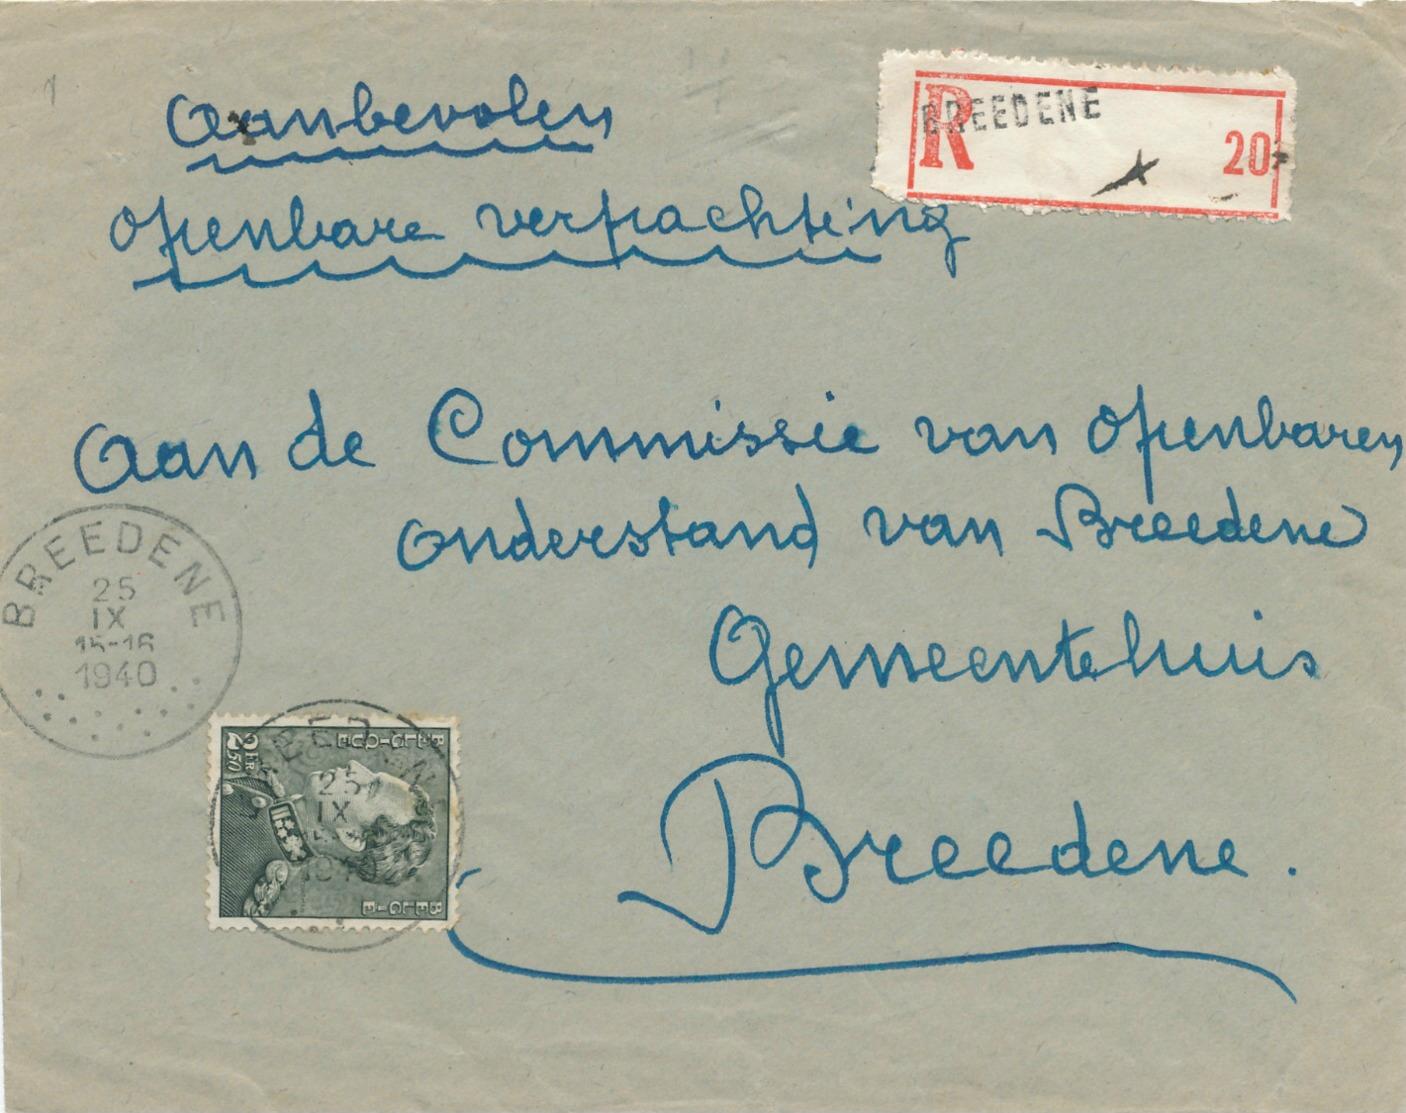 Aanbevolen
R
BREEDENE
20
openbare verpachting
Aan de Commissie van openbaren
onderstand van Breedene
Gemeentehuis
Breedene.
BREEDENE
25
IX
15-16
1940
2 FR
50
BELGIQUE
BELGIE
25
IX